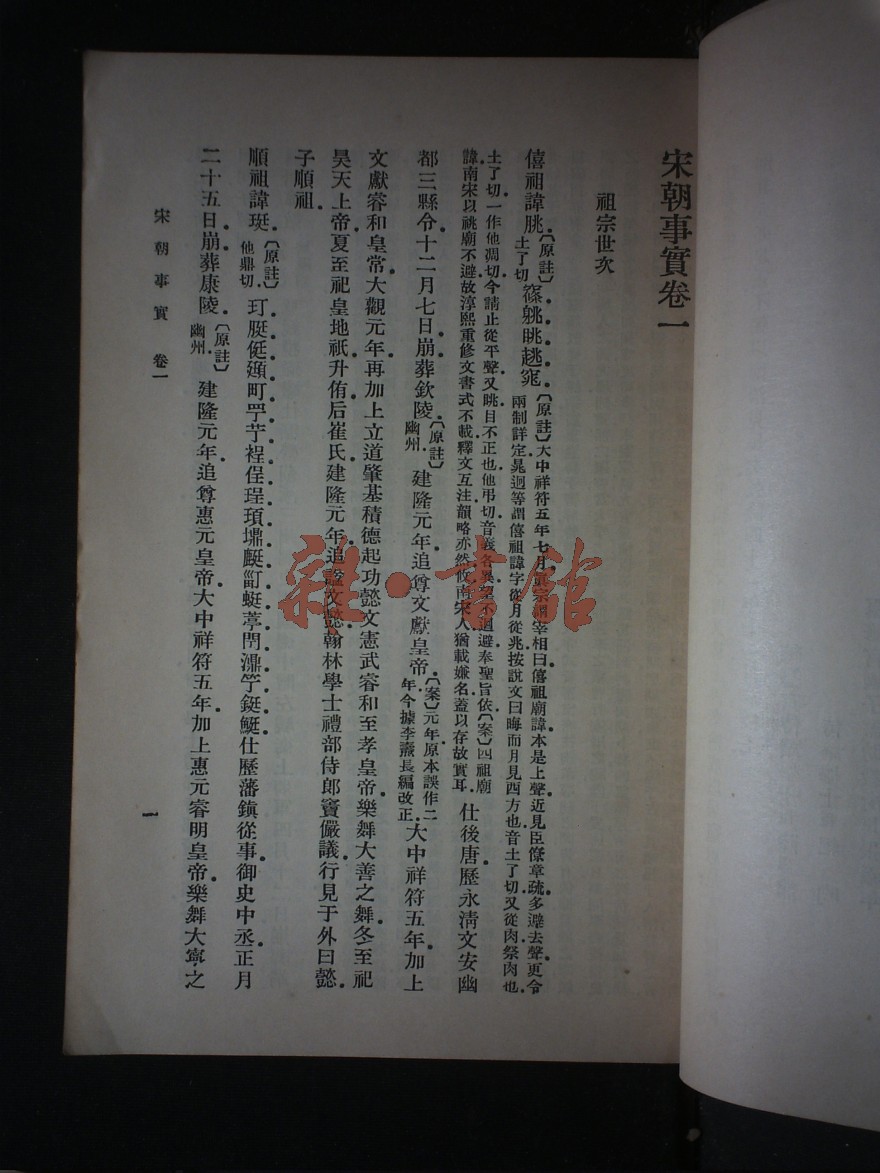 宋朝事實卷一
祖宗世次
僖祖諱朓〔原註〕土了切篠覜眺趒窕〔原註〕大中祥符五年七月真宗謂宰相曰僖祖廟諱本是上聲近見臣僚章疏多避去聲更令
兩制詳定晁迥等謂僖祖諱字從月從兆按說文曰晦而月見西方也音土了切又從肉祭肉也
土了切一作他凋切今請止從平聲又眺目不正也他弔切音義各異望不迴避奉聖旨依〔案〕四祖廟
諱南宋以祧廟不避故淳熙重修文書式不載釋文互注韻略亦然攸南宋人猶載嫌名蓋以存故實耳仕後唐歷永淸文安幽
都三縣令十二月七日崩葬欽陵〔原註〕幽州建隆元年追尊文獻皇帝〔案〕元年原本誤作二年今據李燾長編改正大中祥符五年加上
文獻睿和皇常大觀元年再加上立道肇基積德起功懿文憲武睿和至孝皇帝樂舞大善之舞冬至祀
昊天上帝夏至祀皇地祇升侑后崔氏建隆元年追諡文懿翰林學士禮部侍郎竇儼議行見于外曰懿
子順祖
順祖諱珽〔原註〕他鼎切玎脡侹頲町甼艼裎侹珵頊壀艇甿蜓葶閅濎竽鋌艇仕歷藩鎭從事御史中丞正月
二十五日崩葬康陵〔原註〕幽州建隆元年追尊惠元皇帝大中祥符五年加上惠元睿明皇帝樂舞大寧之
宋朝事實 卷一
一
雜·書館